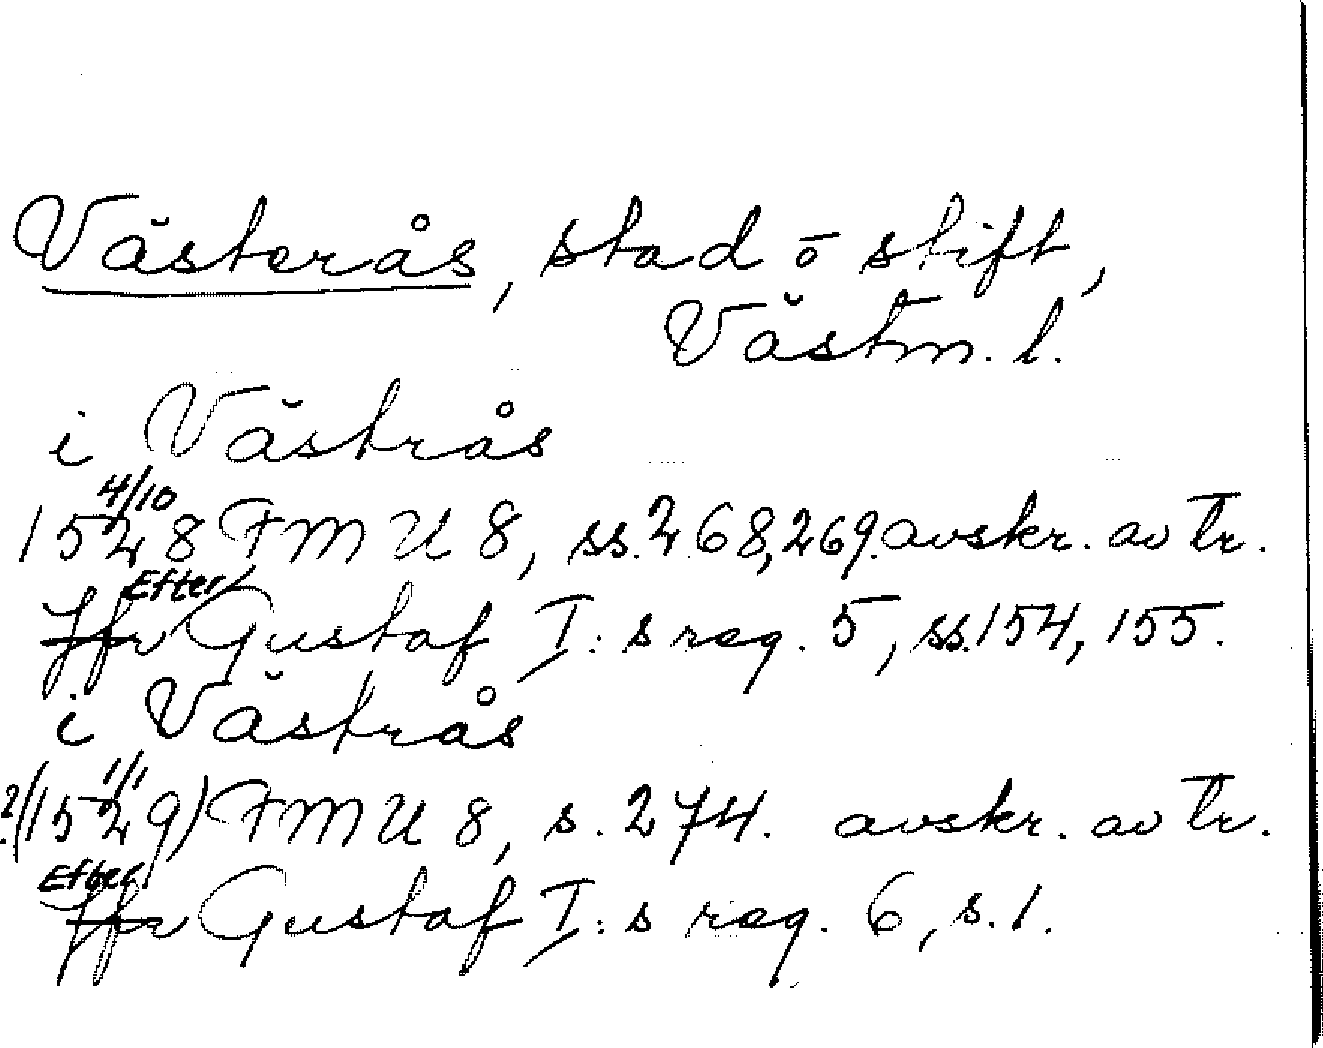 Västerås, stad ō stift,
Västm. l.
i Västrås
4/10
1528 FMU 8, ss. 268, 269. avskr. av tr.
Efter
Jfr Gustaf I:s reg. 5, ss. 154, 155.
i Västrås
1/1
?(1529) FMU 8, s. 274. avskr. av tr.
Efter
Jfr Gustaf I:s reg. 6, s. 1.